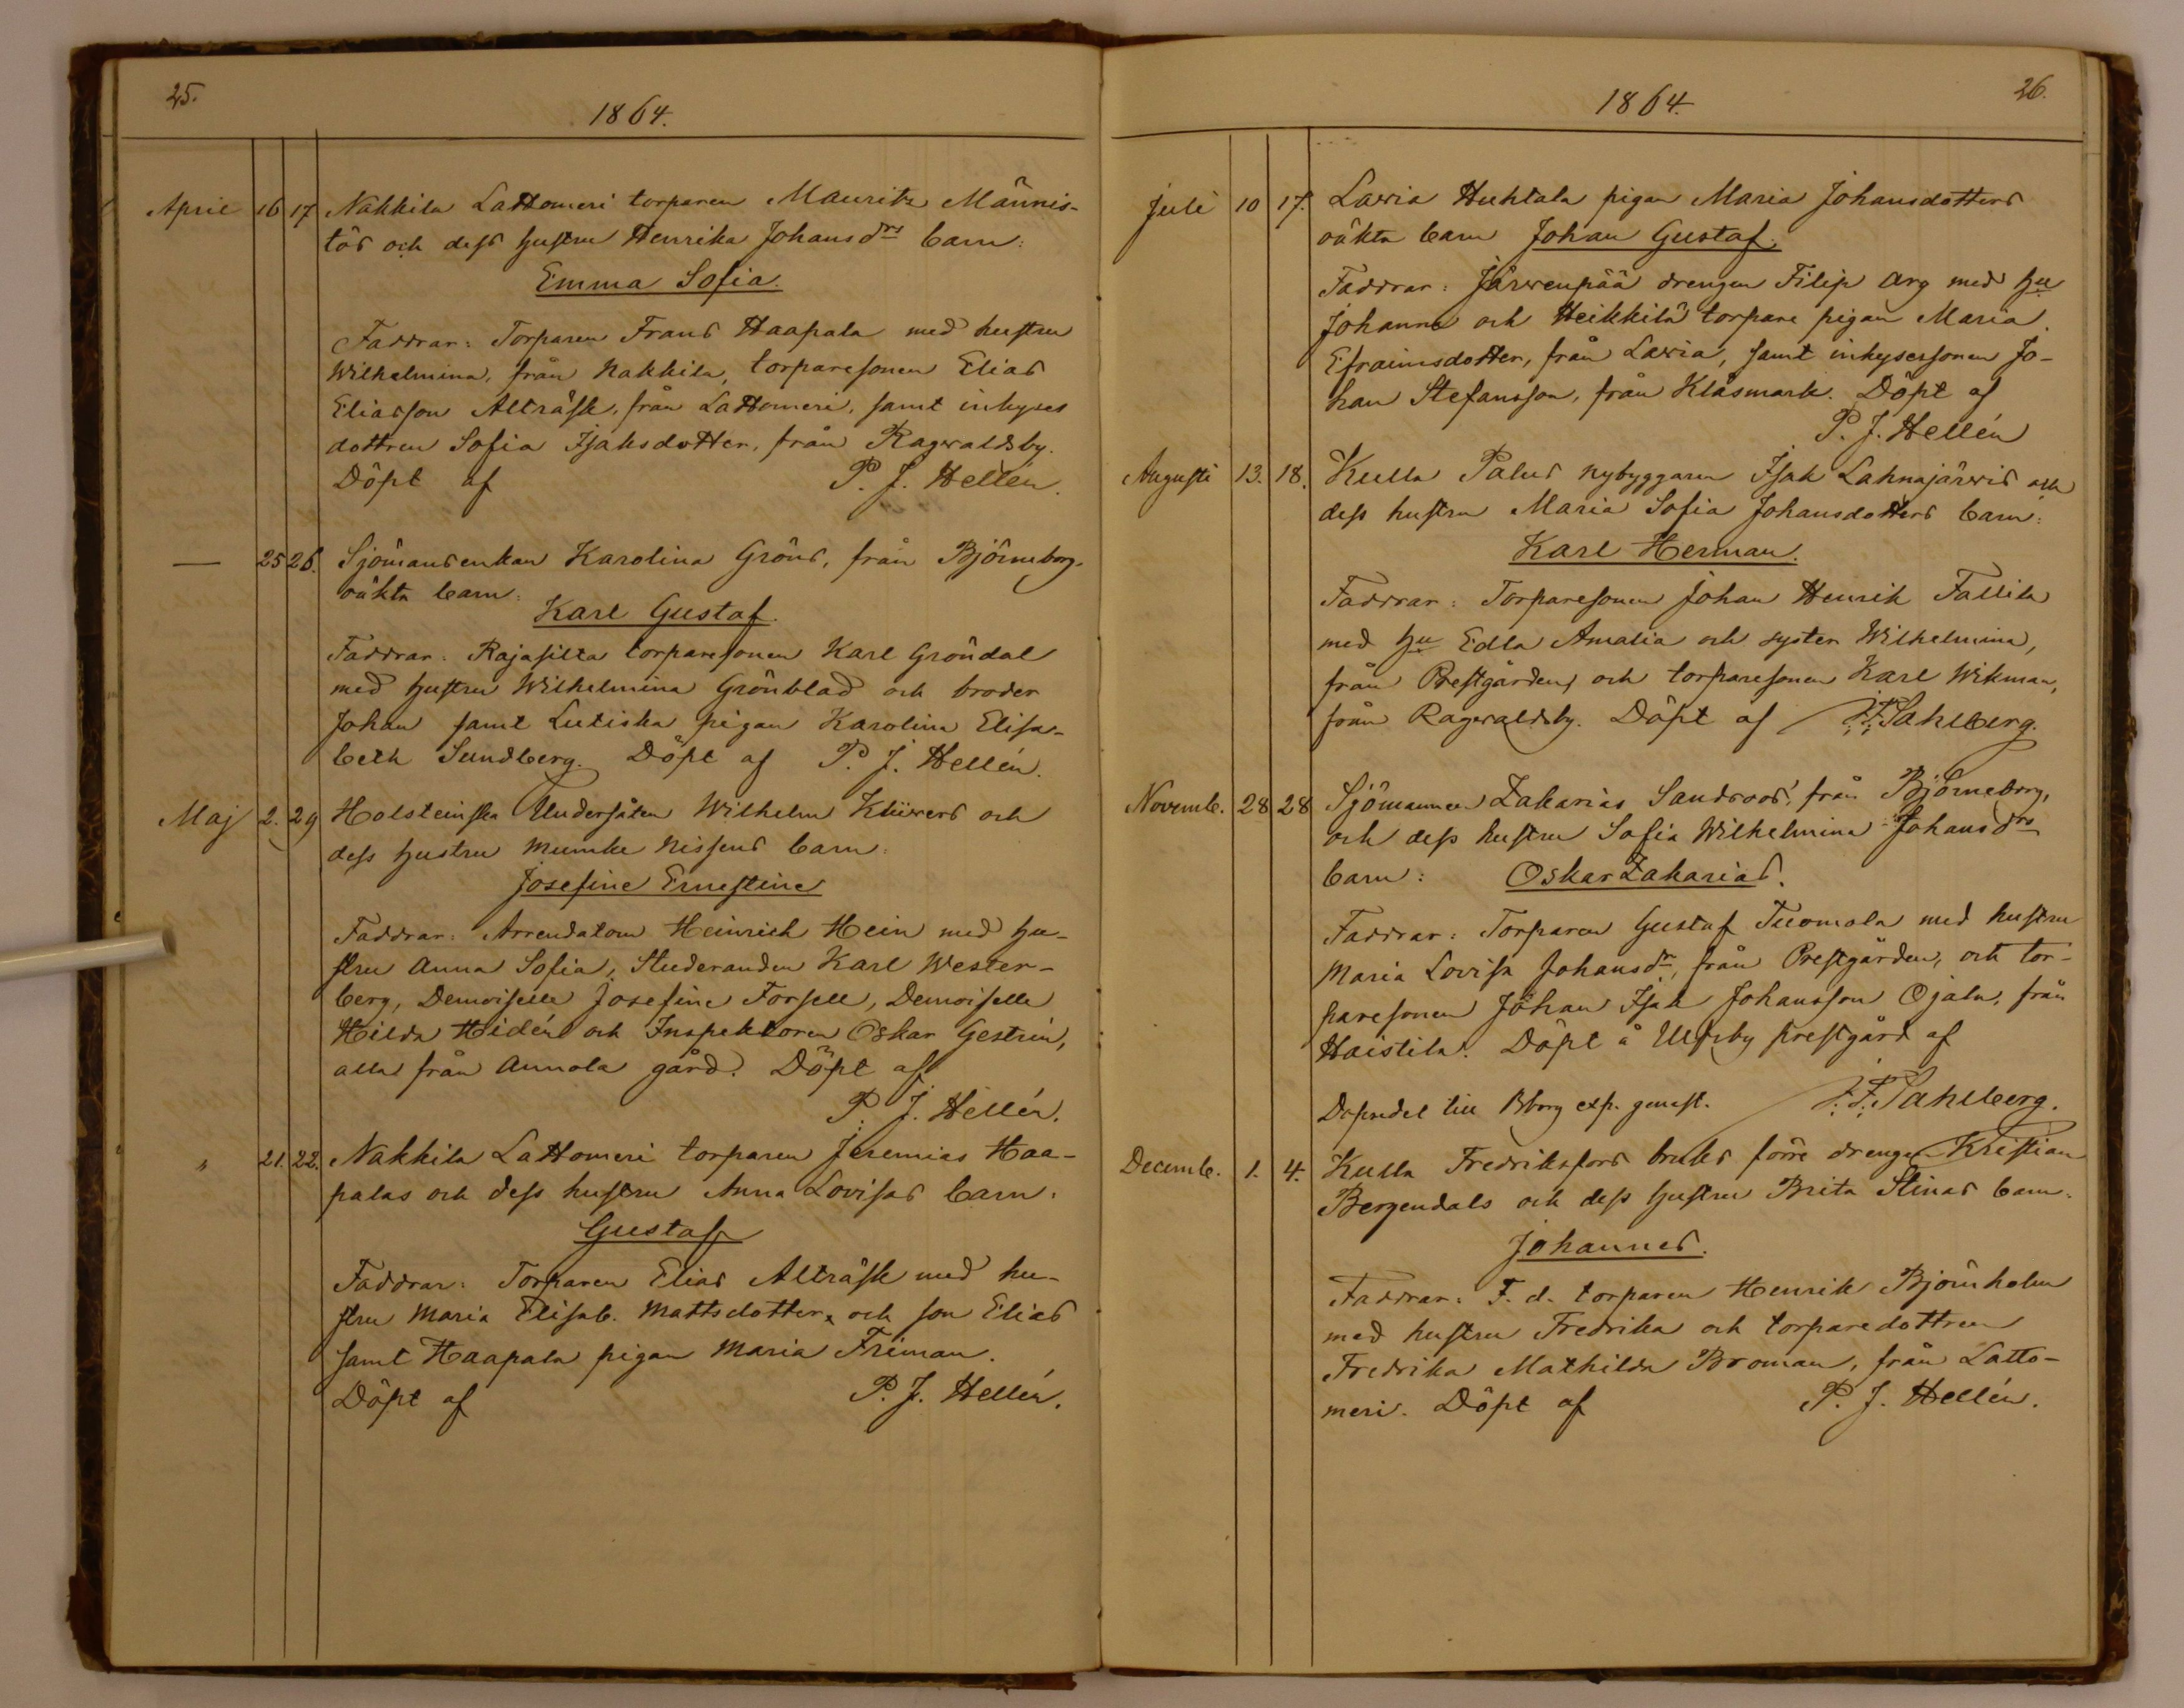 25.
1864.
April 16 17 Nakkila Lattomeri torparen Mauritz Männis-
tös och dess hustru Henrika Johansdrs barn:
Emma Sofia.
Faddrar: Torparen Frans Haapala med hustru
Wilhelmina, från Nakkila, torparesonen Elias
Eliasson Alträsk, från Lattomeri, samt inhyses
dottren Sofia Isaksdotter, från Ragwaldsby.
Döpt af P. J. Hellén.
— 25 26. Sjömansenkan Karolina Gröns, från Björneborg.
oäkta barn:
Karl Gustaf.
Faddrar: Rajasilta torparesonen Karl Gröndal
med hustru Wilhelmina Grönblad och broder
Johan samt Lutiska pigan Karolina Elisa-
beth Sundberg. Döpt af P. J. Hellén.
Maj 2. 29 Holsteinska Undersåten Wilhelm Klüwers och
dess hustru Mumke Nissens barn:
Josefine Ernestine
Faddrar: Arrendatorn Heinrich Hein med hu-
stru Anna Sofia, Studeranden Karl Wester-
berg, Demoiselle Josefine Forsell, Demoiselle
Hilda Hidén och Inspektoren Oskar Gestrin,
alla från Annola gård. Döpt af
P. J. Hellén.
" 21. 22. Nakkila Lattomeri torparen Jeremias Haa-
palas och dess hustru Anna Lovisas barn:
Gustaf
Faddrar: Torparen Elias Alträsk med hu-
stru Maria Elisab. Mattsdotter, och son Elias
samt Haapala pigan Maria Friman.
Döpt af P. J. Hellén.
26.
1864.
Juli 10 17. Lawia Huhtala pigan Maria Johansdotters
oäkta barn Johan Gustaf.
Faddrar: Järwenpää drengen Filip Arg med hu
Johanna och Heikkilä torpare pigan Maria
Efraimsdotter, från Lawia, samt inhysessonen Jo-
han Stefansson, från Klåsmark. Döpt af
P. J. Hellén
Augusti 13. 18. Kulla Palus nybyggaren Isak Lahnajärwis och
dess hustru Maria Sofia Johansdotters barn:
Karl Herman.
Faddrar: Torparesonen Johan Henrik Tallila
med hu Edla Amalia och syster Wilhelmina,
från Prestgården, och torparesonen Karl Wikman,
från Ragwaldsby. Döpt af F. F. Sahlberg.
Novemb. 28 28 Sjömannen Zakarias Sandroos', från Björneborg,
och dess hustru Sofia Wilhelmina Johansdrs
barn: Oskar Zakarias.
Faddrar: Torparen Gustaf Tuomola med hustru
Maria Lovisa Johansdr, från Prestgården, och tor-
paresonen Johan Isak Johansson Ojala, från
Haistila. Döpt å Ulfsby prestgård af
Dopsedel till Bborg exp. genast. F. F. Sahlberg.
Decemb. 1. 4. Kulla Fredriksfors bruks förre drengen Kristian
Bergendals och dess hustru Brita Stinas barn:
Johannes.
Faddrar: F. d. torparen Henrik Björnholm
med hustru Fredrika och torparedottren
Fredrika Mathilda Broman, från Latto-
meri. Döpt af P. J. Hellén.